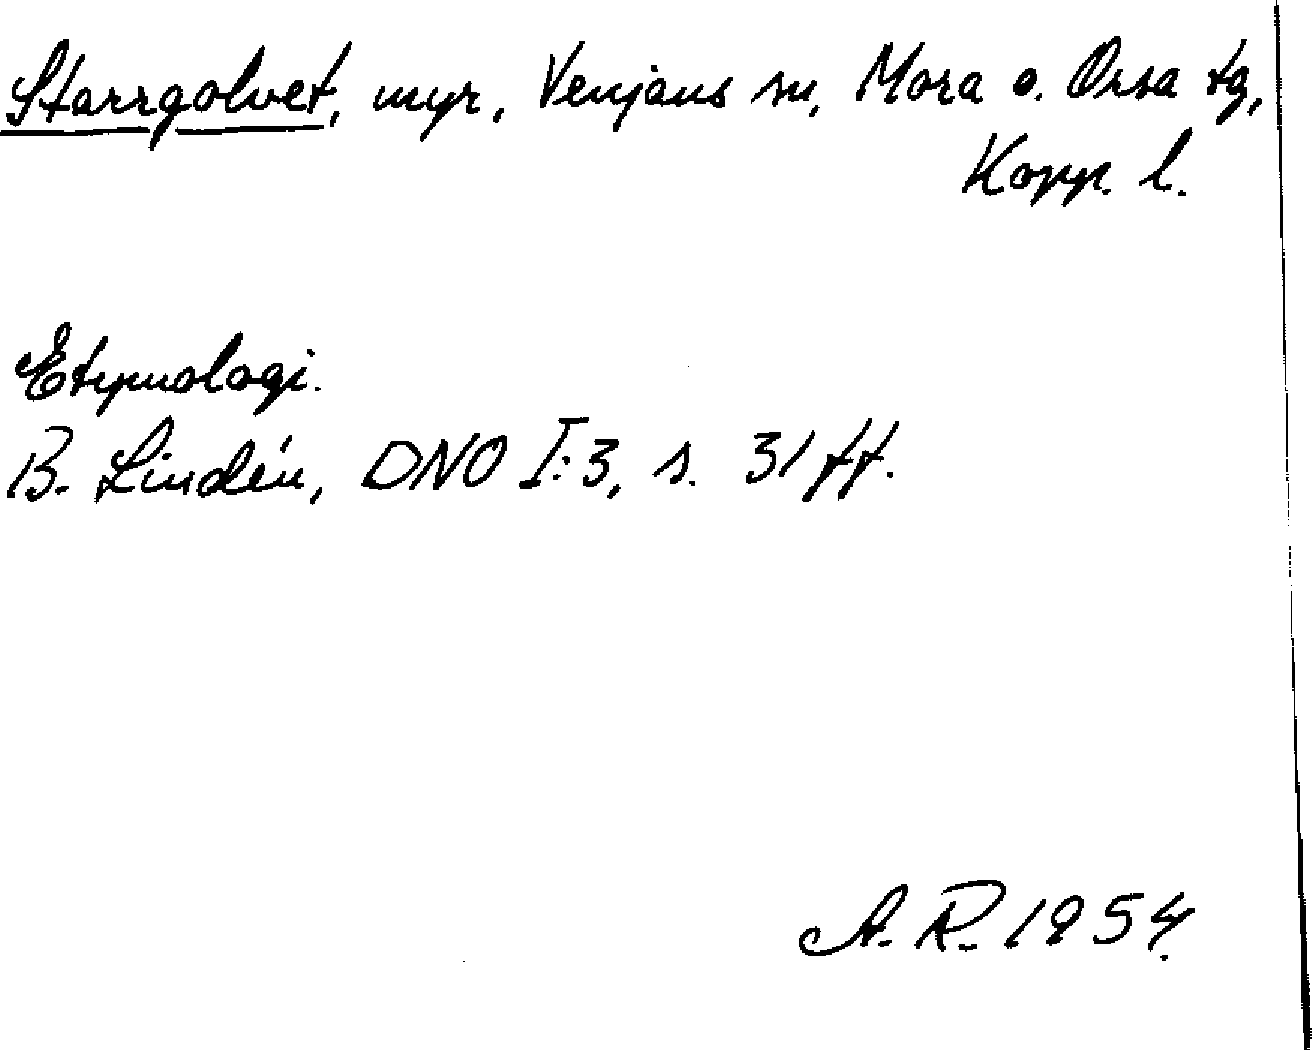 Starrgolvet, myr, Venjans sn, Mora o. Orsa tg,
Kopp. l.
Etymologi.
B. Lindén, DNO I:3, s. 31 ff.
A. R. 1954.